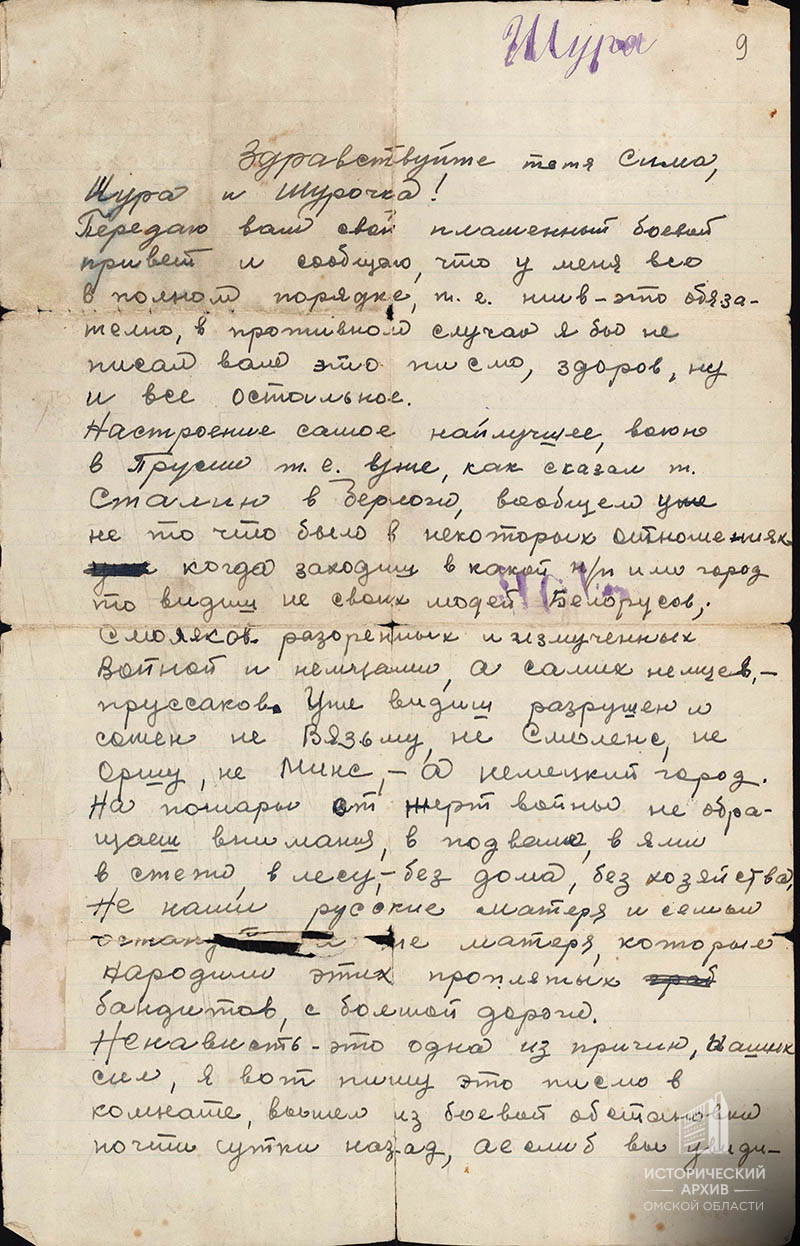 Шура 9
Здравствуйте тетя Сима,
Шура и Шурочка!
Передаю вам свой пламенный боевой
привет и сообщаю, что у меня все
в полном порядке, т. е. жив - это обяза-
телно, в противном случае я бы не
писал вам это писмо, здоров, ну
и все остальное.
Настроение самое найлучшее, воюю
в Прусии т. е. уже, как сказал т.
Сталин в берлоге, вообщем уже
не то что было в некоторых отношениях
когда заходиш в какой н/п или город
то видиш не своих людей Белорусов,
Смоляков разоренных и измученных
войной и немцами, а самих немцев,-
пруссаков. Уже видиш разрушен и
сожен не Вязьму, не Смоленс, не
Оршу, не Минс, - а немецкий город.
На пожары от жерт войны не обра-
щаеш внимания, в подвале, в яме
в степе, в лесу, - без дома, без хозяйства,
Не наши русские матеря и семьи
а те матеря, которые
народили этих проклятых
бандитов, с болшой дороги.
Ненависть - это одна из причин, наших
сил, я вот пишу это писмо в
комнате, вышел из боевой обстановки
почти сутки назад, а еслиб вы увиди-
ИСТОРИЧЕСКИЙ
АРХИВ
ОМСКОЙ ОБЛАСТИ